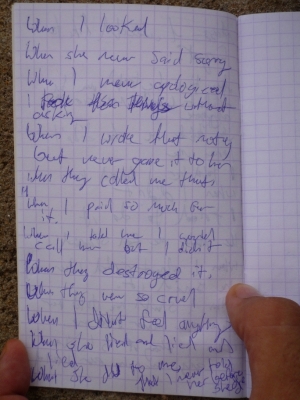 When I looked
When she never said sorry
When I never apologised
took things without
asking
When I wrote that note
but never gave it to him
When they called me that
When I paid so much for
it.
When I told him I would
call him but I didn't
When they destroyed it.
When they were so cruel
When I didn't feel anything
When she lied and lied and
lied
What she did to me